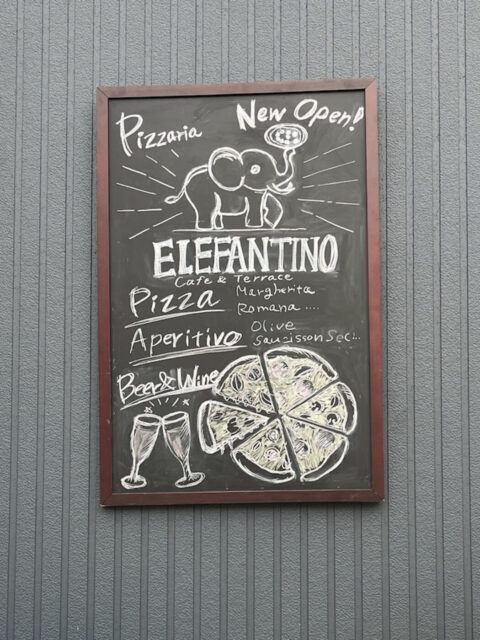 Pizzaria New Open!
ELEFANTINO
Cafe & Terrace
Pizza Margherita
Romana ....
Aperitivo Olive
Saucisson Sec...
Beer & Wine